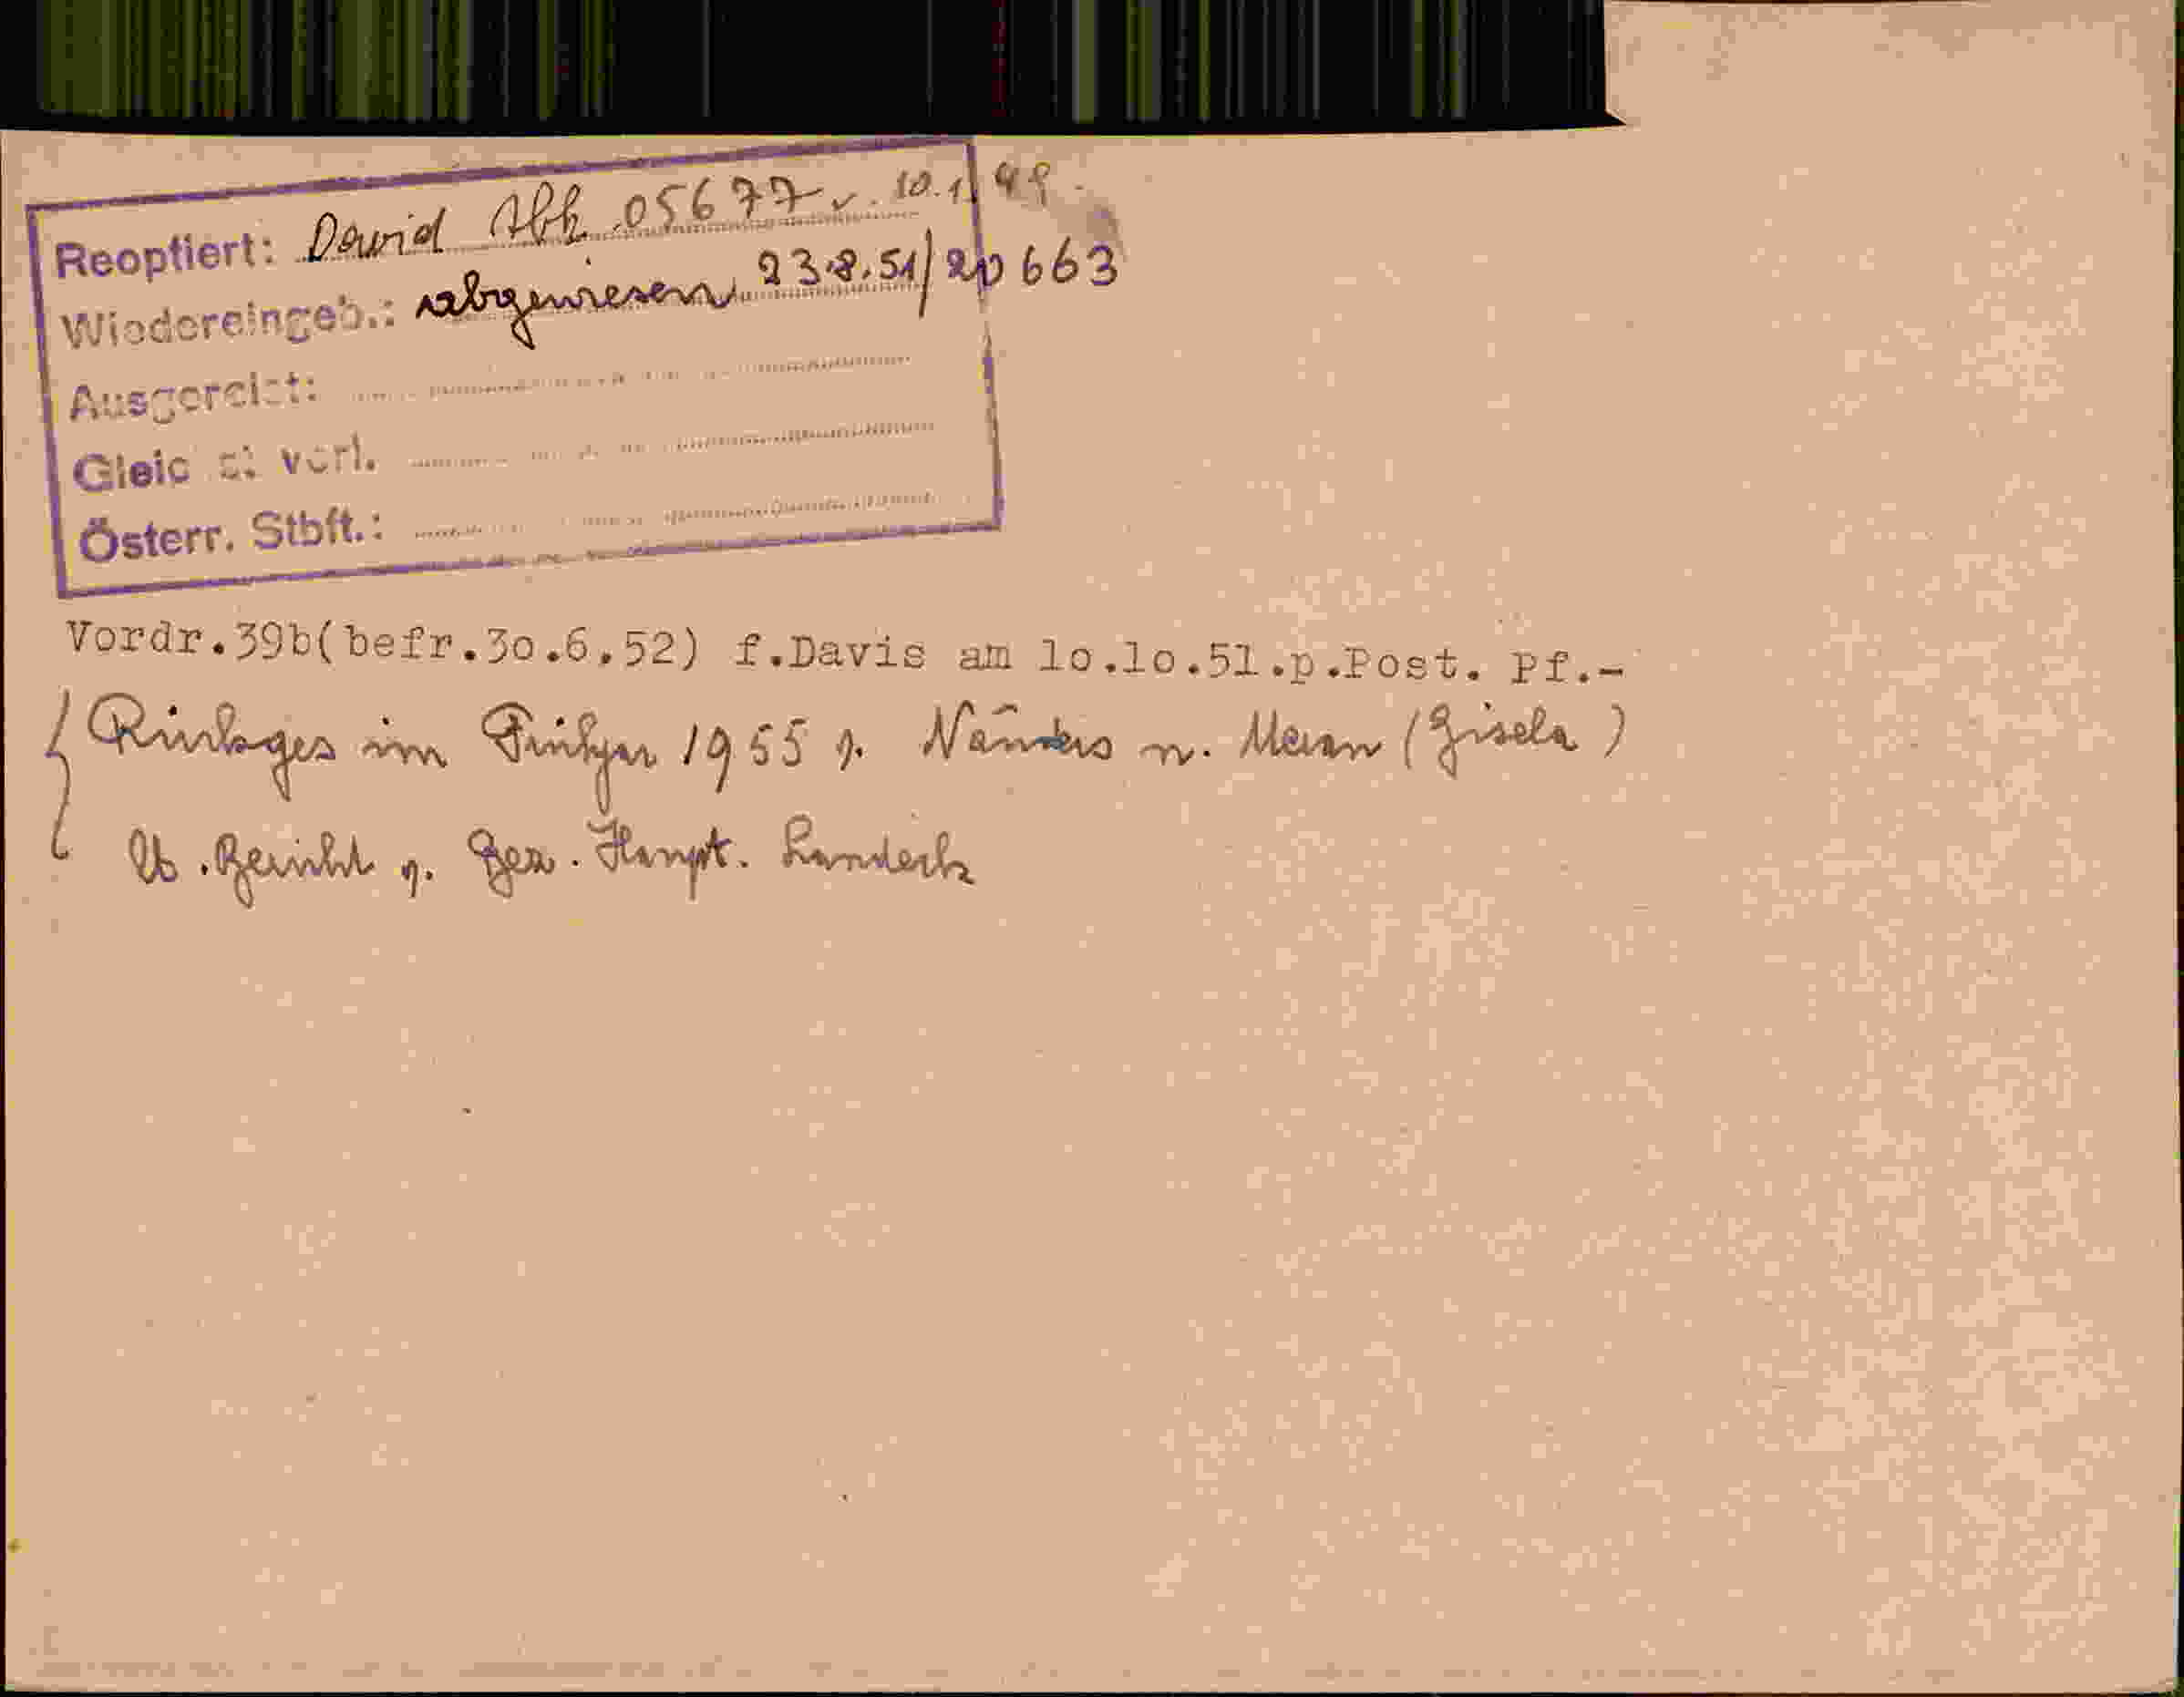 Reoptiert: David Abh. 05677 v. 10.1.49.
Wiedereingeb.: abgewiesen 23.8.51/20663
Ausgereist:
Gleichst. verl.
Österr. Stbft.:
Vordr.39b(befr.3o.6.52) f.Davis am lo.lo.51.p.Post. Pf.-
Rückges im Frühjar 1955 v. Nauders n. Meran (Gisela)
lt. Bericht v. Bez. Haupt. Landeck